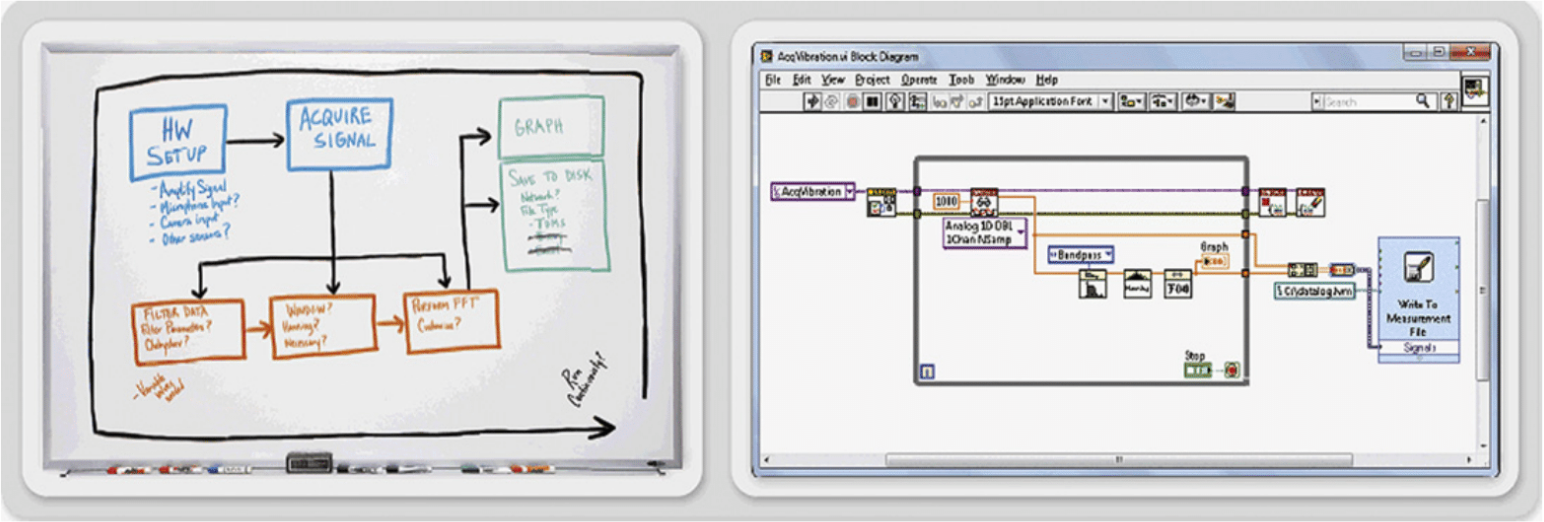 HW
SETUP
- Amplify Signal
- Microphone Input?
- Camera Input
- Other sensors?
ACQUIRE
SIGNAL
GRAPH
SAVE TO DISK
Network?
File Type
- TDMS
FILTER DATA
Filter Parameters?
WINDOW?
Hanning?
Necessary?
PERFORM FFT
Customize?
- Variable
Run
Continuously?
AcqVibration.vi Block Diagram
File Edit View Project Operate Tools Window Help
11pt Application Font
Search
AcqVibration
1000
Analog 1D DBL
1Chan NSamp
Bandpass
Graph
Hanning
Stop
TF
i
C:\datalog.lvm
Write To
Measurement
File
Signals